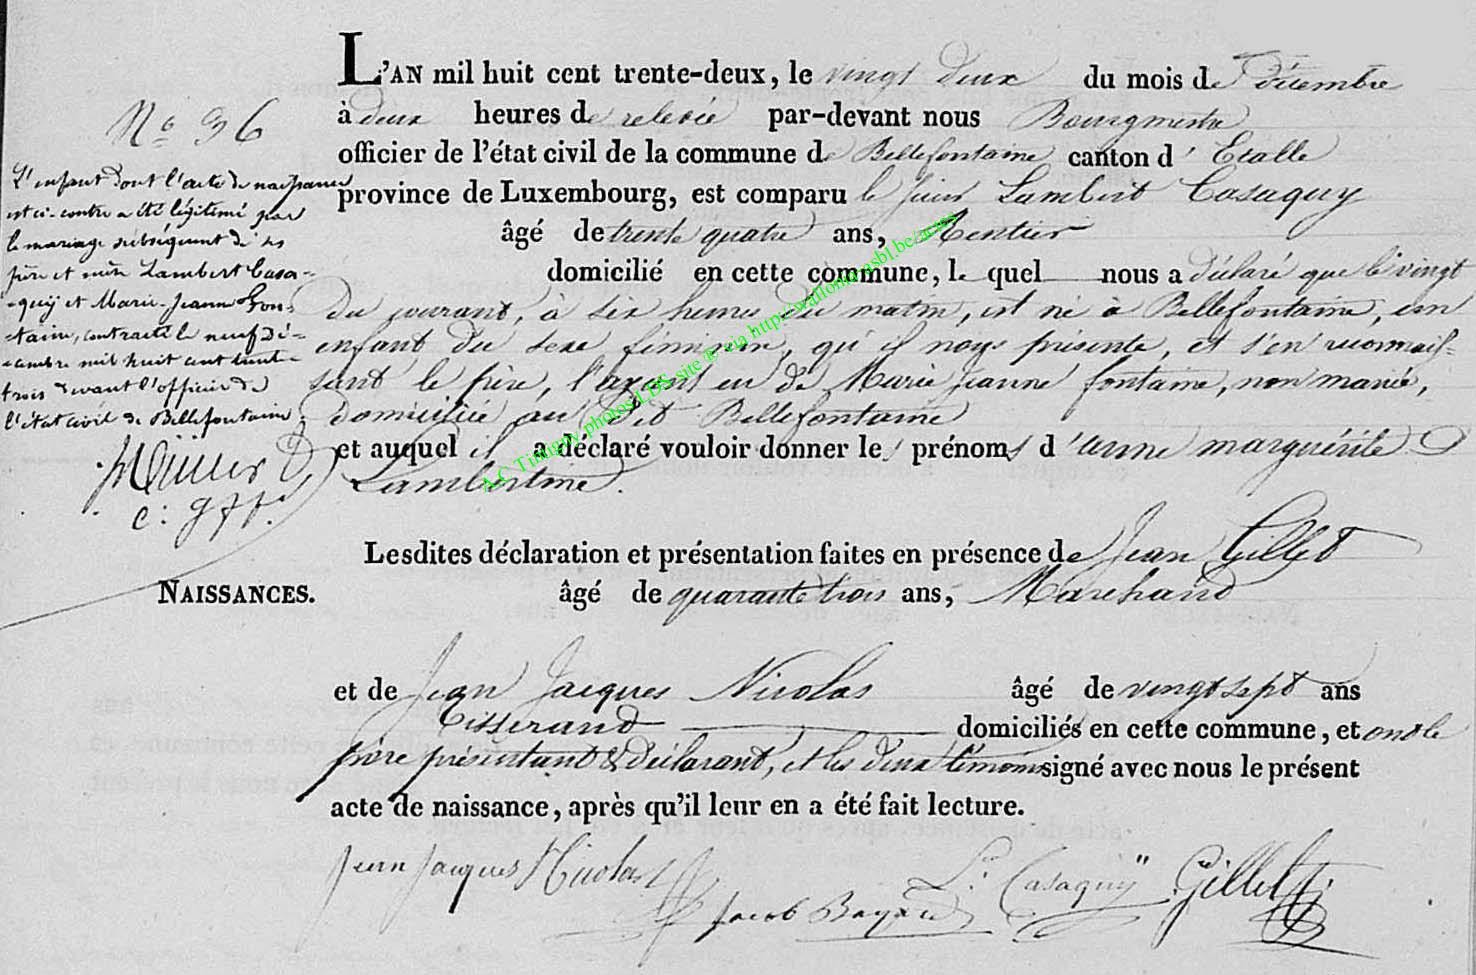 L'AN mil huit cent trente-deux, le vingt deux du mois de décembre
à deux heures de relevée par-devant nous Bourgmestre
officier de l'état civil de la commune de Bellefontaine canton d' Etalle
province de Luxembourg, est comparu le sieur Lambert Casaquy
âgé de trente quatre ans, Rentier
domicilié en cette commune, le quel nous a déclaré que le vingt
du courant, à six heures du matin, est né à Bellefontaine, un
enfant du sexe féminin, qu'il nous présente, et s'en reconnais-
sant le père, l'ayant eu de Marie Jeanne fontaine, non mariée,
domiciliée au dit Bellefontaine
et auquel il a déclaré vouloir donner les prénoms d'anne marguérite
Lambertine.
Lesdites déclaration et présentation faites en présence de Jean Gillet
âgé de quarante trois ans, Marchand
et de Jean Jacques Nicolas âgé de vingt sept ans
Tisserand domiciliés en cette commune, et ont le
père présentant & déclarant, et les deux témoins signé avec nous le présent
acte de naissance, après qu'il leur en a été fait lecture.
Jean Jacques Nicolas
Jacob Bayard
L. Casaquÿ
Gillet
N° 36
L'enfant dont l'acte de naissance
est ci-contre a été légitimé par
le mariage subséquent de ses
père et mère Lambert Casa-
-quij et Marie-Jeanne Fon-
-taine, contracté le neuf dé-
-cembre mil huit cent trente-
trois devant l'officier de
l'état civil de Bellefontaine.
NAISSANCES.
A.C Tintigny photos LDS site ® via http://wallonica.asbl.be/actes